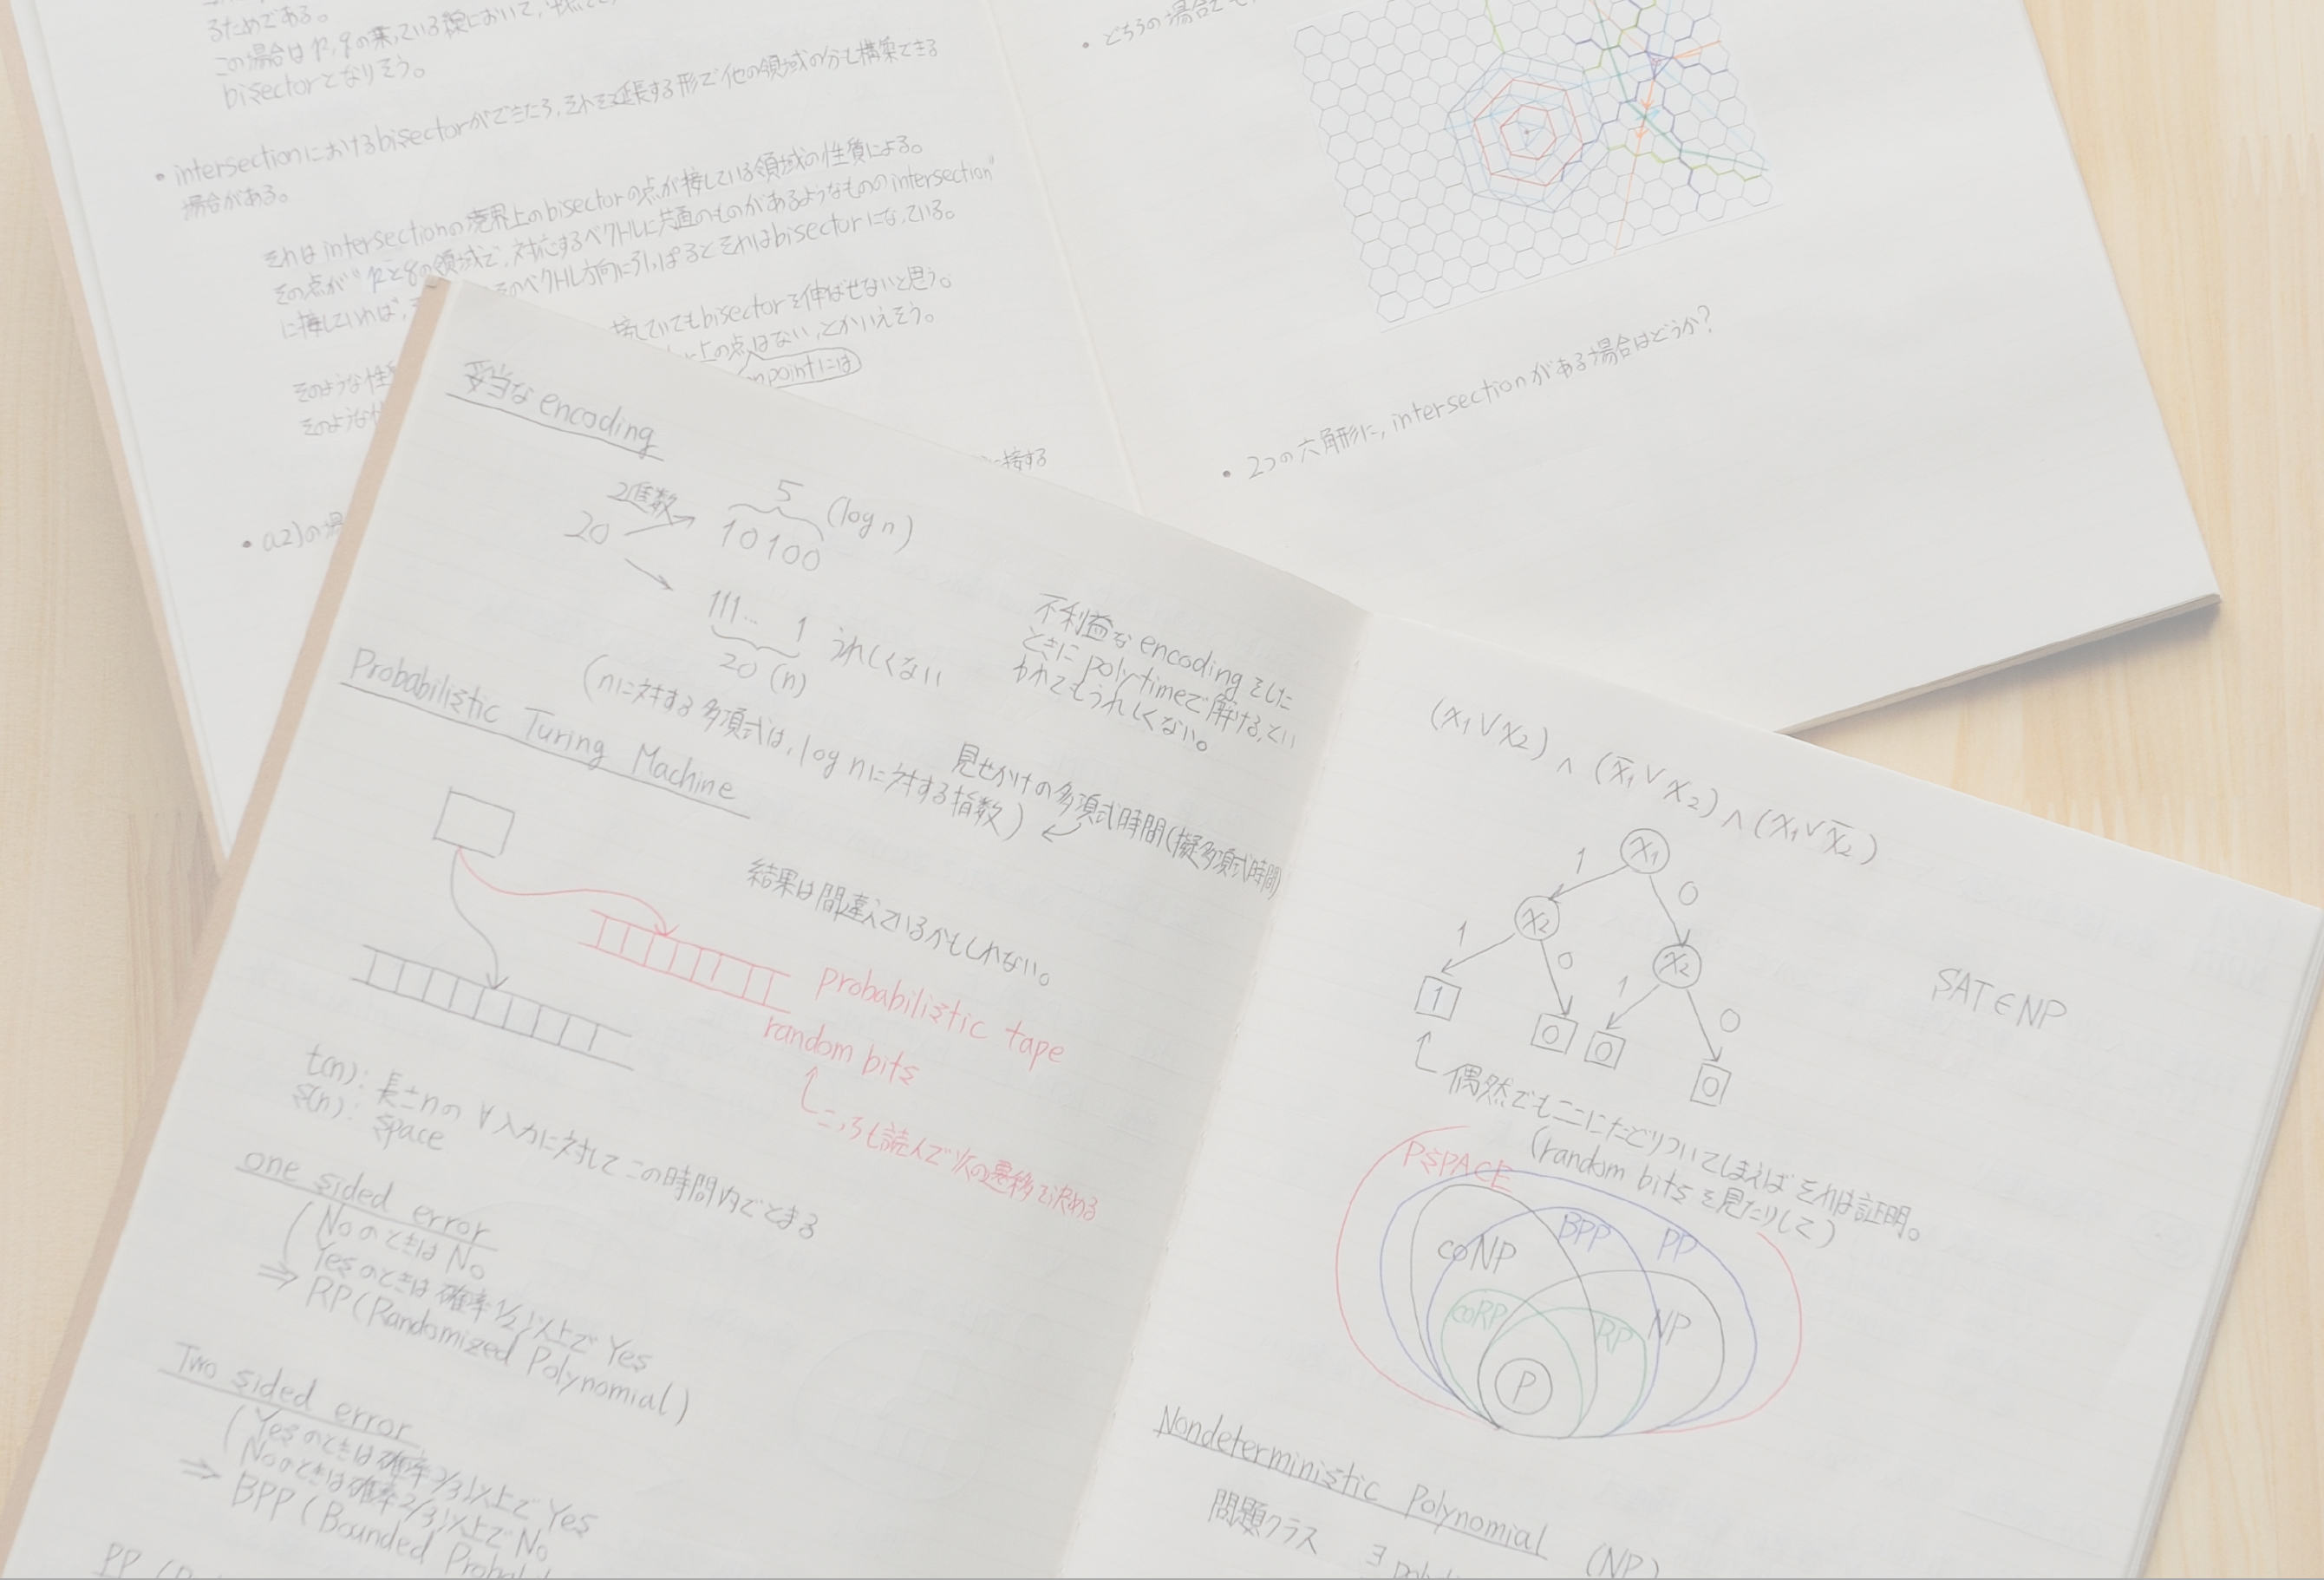 るためである。
この場合はp,qの乗っている線において,
bisectorとなりそう。
• intersectionにおけるbisectorができたら,それを延長する形で他の領域の分も構築できる
場合がある。
それはintersectionの境界上のbisectorの点が接している領域の性質による。
その点が"pとqの領域で,対応するベクトルに共通のものがあるようなもののintersection"
に接していれば, のベクトル方向に引っぱるとそれはbisectorになっている。
接していてもbisectorを伸ばせないと思う。
上の点はない,とかいえそう。
pointには
そのような性
そのような
に接する
• a2)の場
• どちらの場合でも,
• 2つの六角形に,intersectionがある場合はどうか?
妥当なencoding
20 2進数 10100 5 (log n)
111... 1 うれしくない
20 (n)
(nに対する多項式は,log nに対する指数)
不利益なencodingをした
ときにpoly timeで解ける,とい
われてもうれしくない。
見せかけの多項式時間(擬多項式時間)
Probabilistic Turing Machine
結果は間違えているかもしれない。
probabilistic tape
random bits
こっちも読んで次の遷移を決める
t(n): 長さnの∀入力に対してこの時間内でとまる
s(n): space
one sided error
(NoのときはNo
Yesのときは確率1/2以上でYes
⇒ RP (Randomized Polynomial)
Two sided error
(Yesのときは確率2/3以上でYes
Noのときは確率2/3以上でNo
⇒ BPP (Bounded
PP
(x1∨x2)∧(x̄1∨x2)∧(x1∨x̄2)
x1
1 0
x2 x2
1 0 1 0
1 0 0 0
SAT∈NP
偶然でもここにたどりついてしまえばそれは証明。
(random bitsを見たりして)
PSPACE
BPP PP
coNP
coRP RP NP
P
Nondeterministic Polynomial (NP)
問題クラス ∃